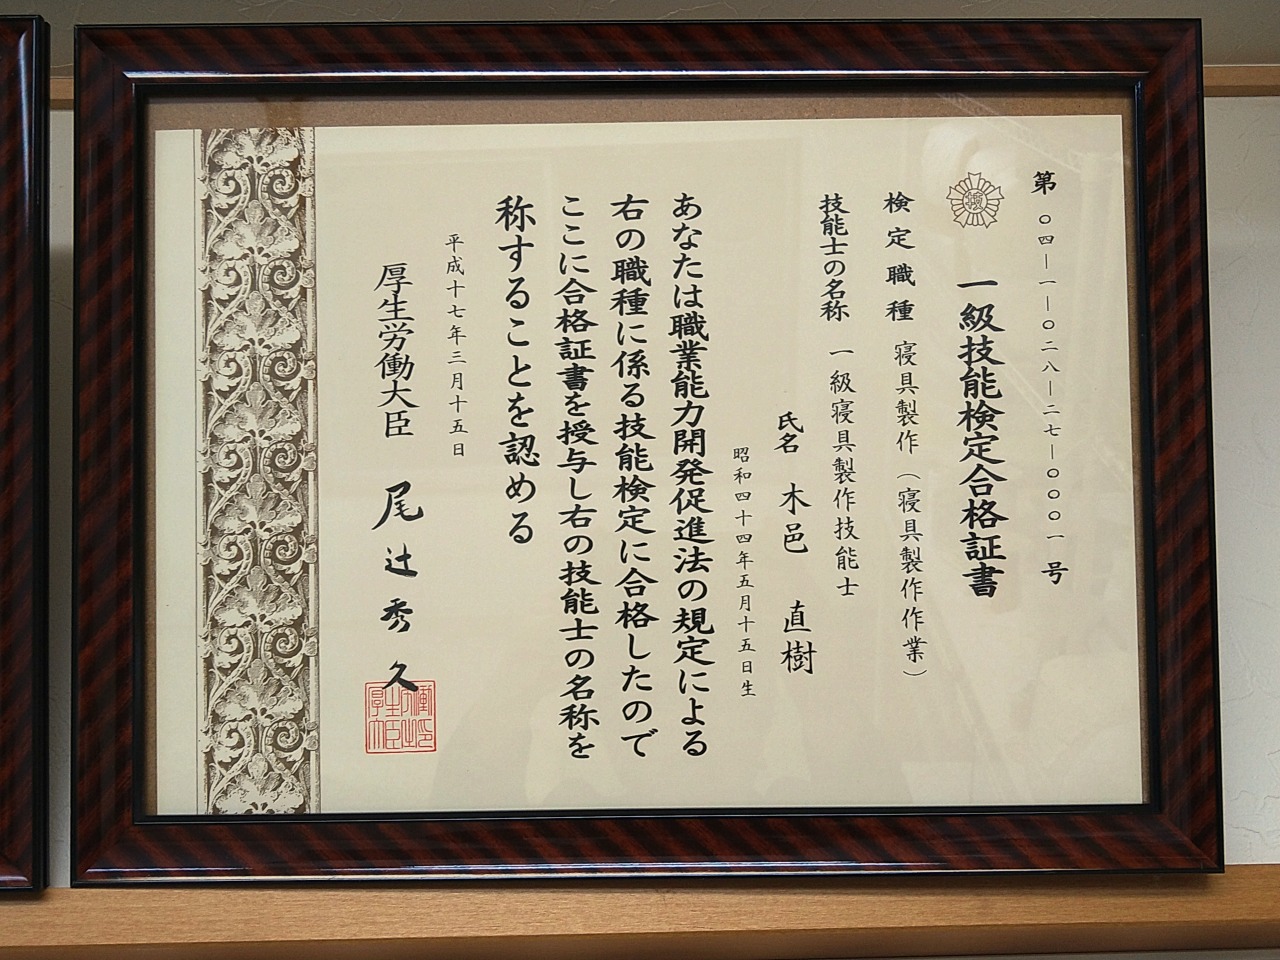 第〇四―一―〇二八―二七―〇〇〇一号
一級技能検定合格証書
検定職種 寝具製作（寝具製作作業）
技能士の名称 一級寝具製作技能士
氏名 木邑 直樹
昭和四十四年五月十五日生
あなたは職業能力開発促進法の規定による
右の職種に係る技能検定に合格したので
ここに合格証書を授与し右の技能士の名称を
称することを認める
平成十七年三月十五日
厚生労働大臣 尾辻秀久